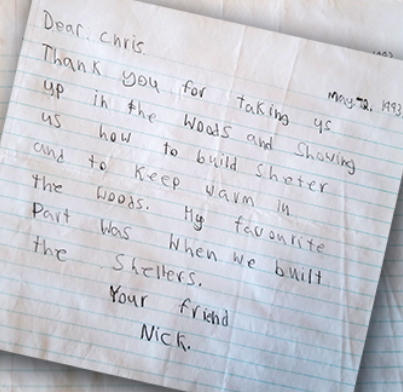 Dear. Chris.
May 12, 1993
Thank you for taking us
up in the woods and showing
us how to build sheter
and to keep warm in
the woods. My favourite
Part was when we built
the shelters.
Your friend
Nick.